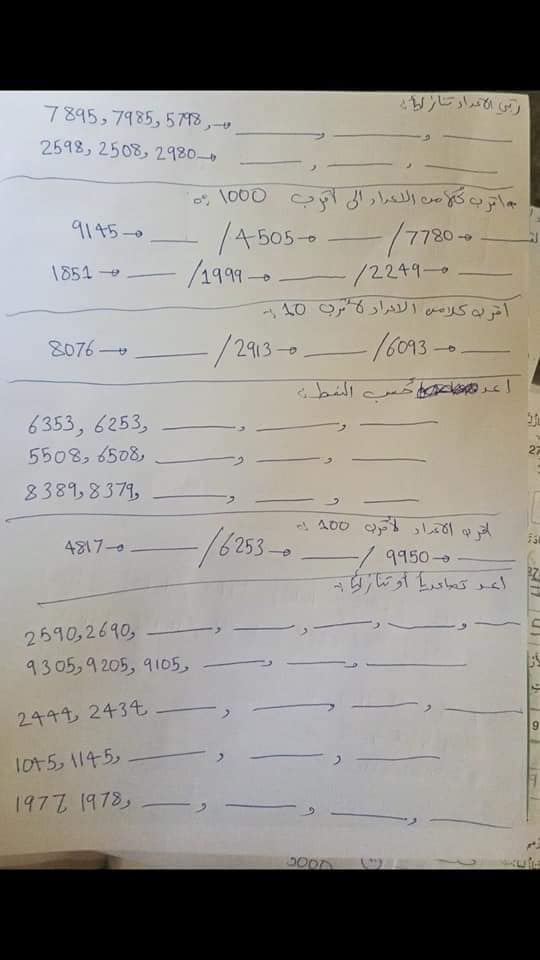 رتبي الأعداد تنازليًا :
7895, 7985, 5798, → ____, ____, ____
2598, 2508, 2980 → ____, ____, ____
* أقرب كلًا من الأعداد الى أقرب 1000 :
9145 → ____ / 4505 → ____ / 7780 → ____
1851 → ____ / 1999 → ____ / 2249 → ____
أقرب كلًا من الأعداد لأقرب 10 :
8076 → ____ / 2913 → ____ / 6093 → ____
أعد حسب النمط :
6353, 6253, ____, ____, ____
5508, 6508, ____, ____, ____
8389, 8379, ____, ____, ____
أقرب الأعداد لأقرب 100 :
4817 → ____ / 6253 → ____ / 9950 → ____
أعد تصاعديًا أو تنازليًا :
2590, 2690, ____, ____, ____, ____, ____
9305, 9205, 9105, ____, ____, ____
2444, 2434, ____, ____, ____, ____
1045, 1145, ____, ____, ____
1977, 1978, ____, ____, ____, ____